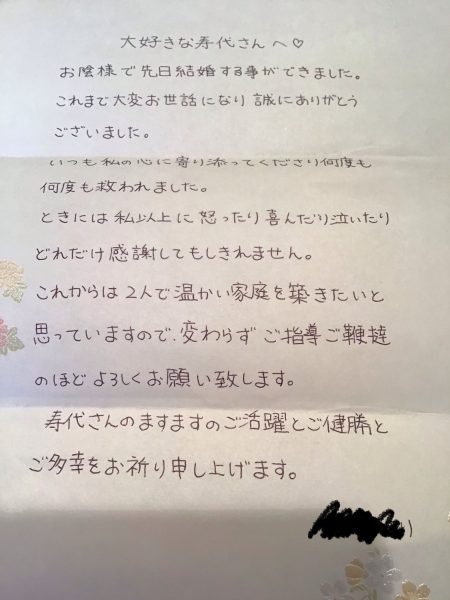 大好きな寿代さんへ♡
お陰様で先日結婚する事ができました。
これまで大変お世話になり誠にありがとう
ございました。
いつも私の心に寄り添ってくださり何度も
何度も救われました。
ときには私以上に怒ったり喜んだり泣いたり
どれだけ感謝してもしきれません。
これからは2人で温かい家庭を築きたいと
思っていますので、変わらずご指導ご鞭撻
のほどよろしくお願い致します。
寿代さんのますますのご活躍とご健勝と
ご多幸をお祈り申し上げます。